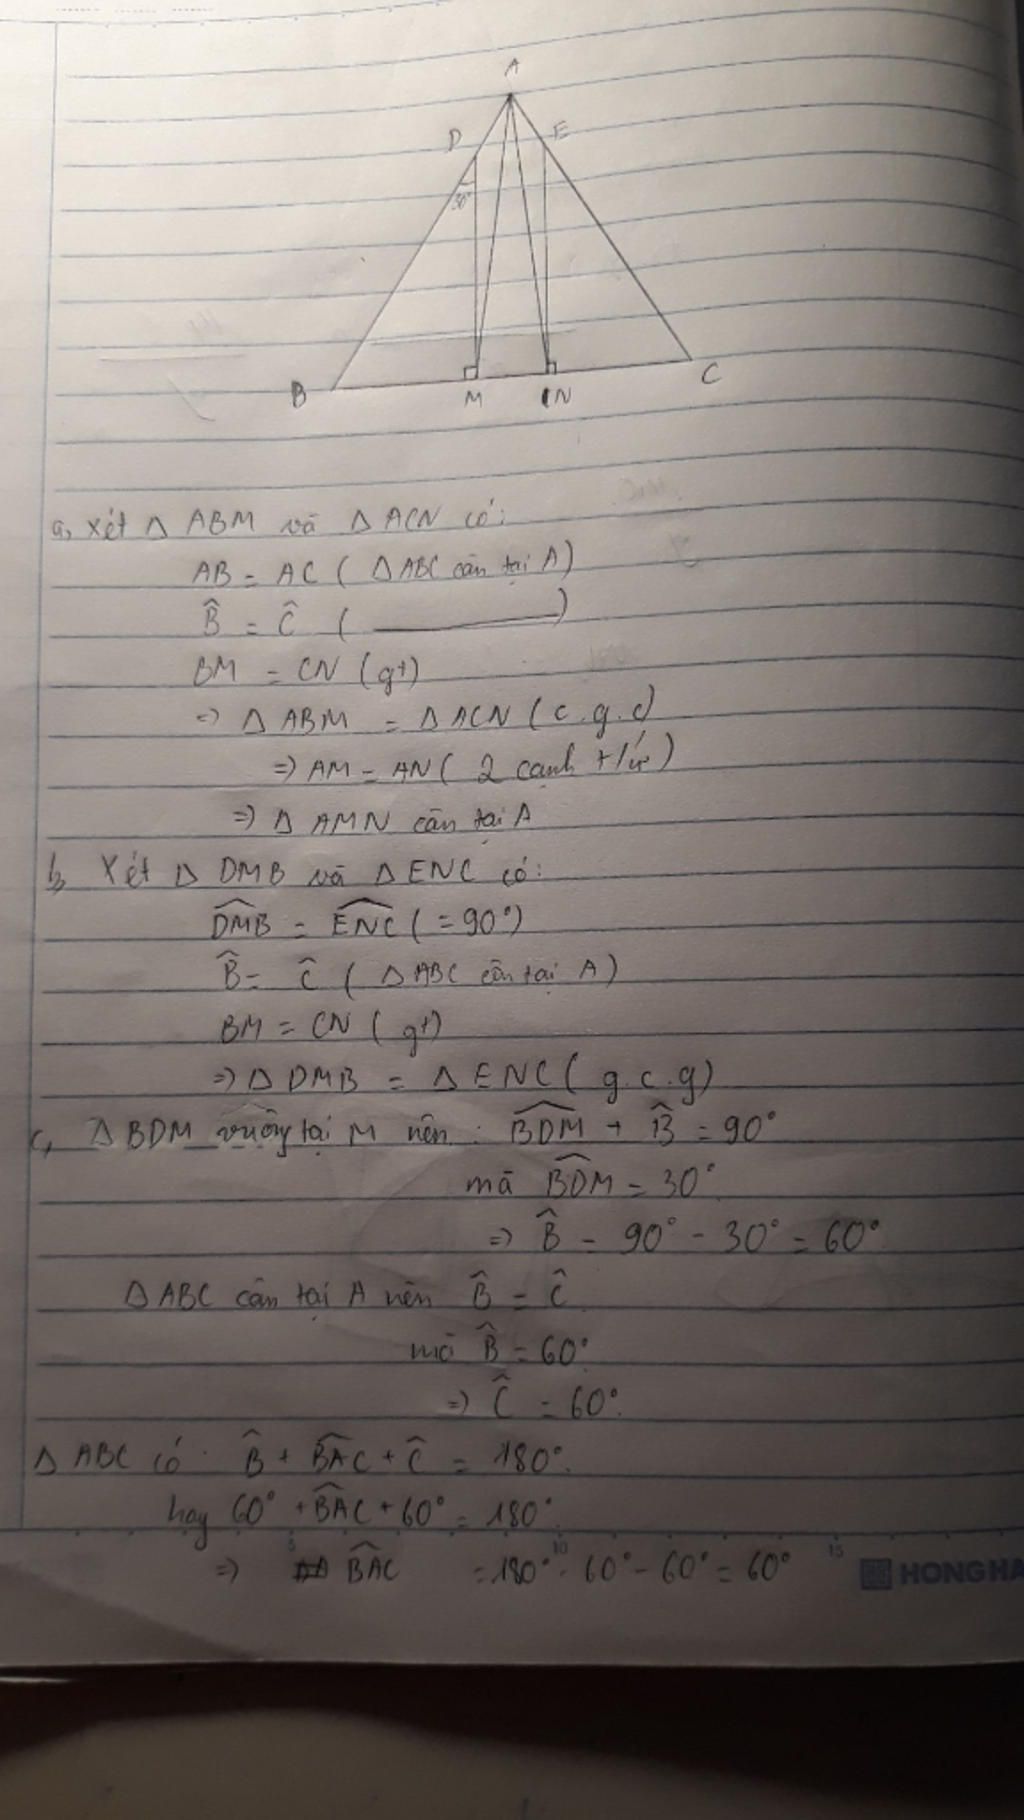 A
D E
30°
B M N C
a, Xét Δ ABM và Δ ACN có:
AB = AC ( Δ ABC cân tại A)
B̂ = Ĉ ( ______ )
BM = CN (gt)
=> Δ ABM = Δ ACN ( c.g.c)
=> AM = AN ( 2 cạnh t/ứ)
=> Δ AMN cân tại A
b, Xét Δ DMB và Δ ENC có:
DMB̂ = ENĈ ( = 90°)
B̂ = Ĉ ( Δ ABC cân tại A)
BM = CN ( gt)
=> Δ DMB = Δ ENC ( g.c.g)
c, Δ BDM vuông tại M nên : BDM̂ + B̂ = 90°
mà BDM̂ = 30°
=> B̂ = 90° - 30° = 60°
Δ ABC cân tại A nên B̂ = Ĉ
mà B̂ = 60°
=> Ĉ = 60°.
Δ ABC có : B̂ + BAĈ + Ĉ = 180°.
hay 60° + BAĈ + 60° = 180°.
5 10 15
=> BAĈ = 180° - 60° - 60° = 60°
HONG HA